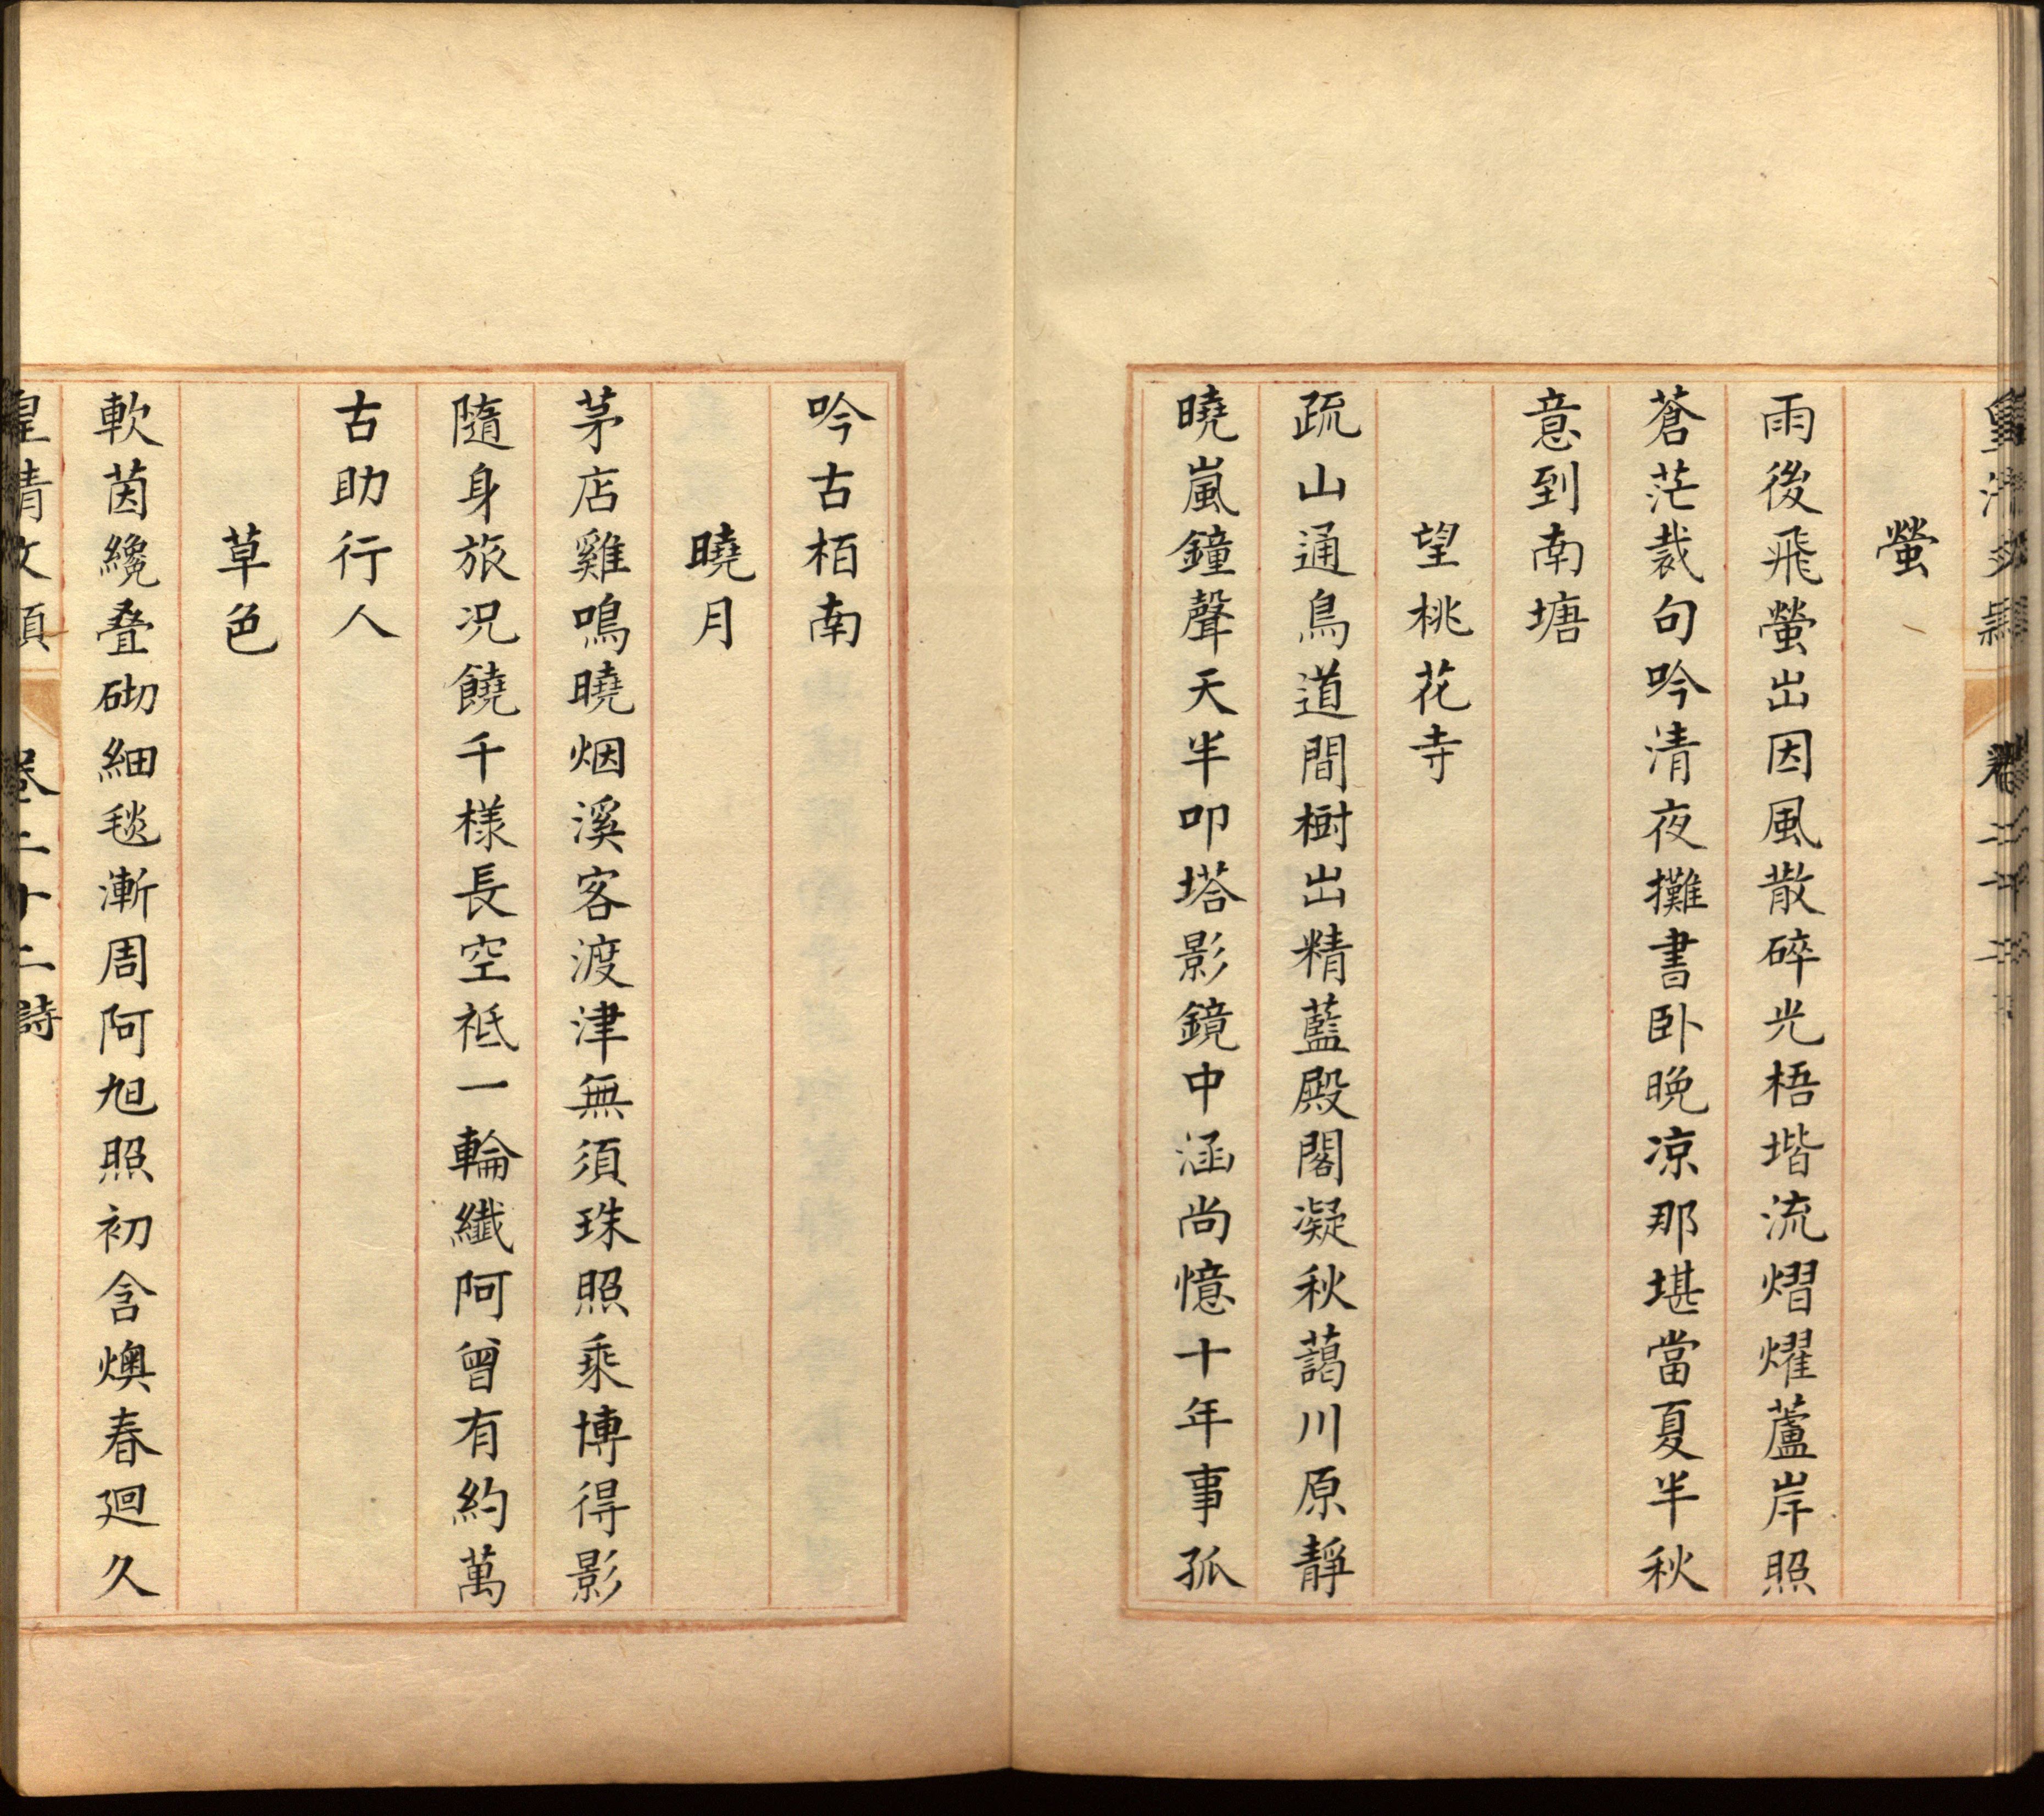 螢
雨後飛螢出因風散碎光梧堦流熠燿蘆岸照
蒼茫裁句吟清夜攤書卧晚凉那堪當夏半秋
意到南塘
望桃花寺
疏山通鳥道間樹出精藍殿閣凝秋藹川原靜
曉嵐鐘聲天半叩塔影鏡中涵尚憶十年事孤
吟古栢南
曉月
茅店雞鳴曉烟溪客渡津無須珠照乘博得影
隨身旅况饒千樣長空祗一輪纖阿曾有約萬
古助行人
草色
軟茵纔叠砌細毯漸周阿旭照初含燠春廻久
皇清文頴 卷二十二詩